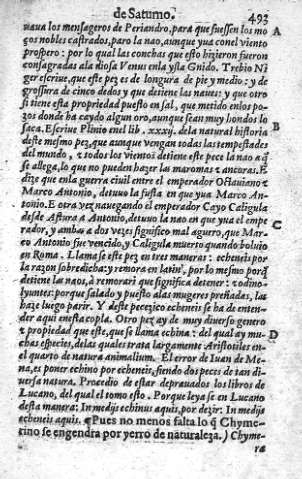 de Saturno. 493
uaua los mensageros de Periandro, para que fuessen los mo
ços nobles castrados, paro la nao, aunque yua con el viento
prospero: por lo qual las conchas que esto hizieron fueron
consagradas ala diosa Venus enla ysla Gnido. Trebio Ni
ger escriue, que este pez es de longura de pie y medio: y de
grossura de cinco dedos y que detiene las naues: y que otro
si tiene esta propriedad puesto en sal, que metido enlos po-
zos donde ha caydo algun oro, aunque sean muy hondos lo
saca. Escriue Plinio enel lib. xxxij. dela natural historia
deste mesmo pez, que aunque vengan todas las tempestades
del mundo, & todos los vientos detiene este pece la nao a q̃
se allega, lo que no pueden hazer las maromas & ancoras. E
dize que enla guerra ciuil entre el emperador Octauiano &
Marco Antonio, detuuo la fusta en que yua Marco An-
tonio. E otra vez nauegando el emperador Cayo Caligula
desde Astura a Antonio, detuuo la nao en que yua el empe
rador, y ambas a dos vezes significo mal aguero, que Mar-
co Antonio fue vencido, y Caligula muerto quando boluio
en Roma. Llama se este pez en tres maneras: echeneis por
la razon sobredicha: y remora en latin, por lo mesmo porq̃
detiene las naos, à remorari que significa detener: & odino-
lyuntes: porque salado y puesto alas mugeres preñadas, las
haze luego parir. Y deste pecezico echeneis se ha de enten-
der aqui enesta copla. Otro pez ay de muy diuerso genero
& propiedad que este, que se llama echina: del qual ay mu-
chas especies, delas quales trata largamente Aristotiles en-
el quarto de natura animalium. El error de Iuan de Me-
na, es poner echino por echeneis, siendo dos peces de tan di-
uersa natura. Procedio de estar deprauados los libros de
Lucano, del qual el tomo esto. Porque leya se en Lucano
desta manera: In medijs echinus aquis, por dezir: In medijs
echeneis aquis. ¶ Pues no menos falta lo q̃ Chyme-
rino se engendra por yerro de naturaleza.) Chyme-
ra
A
B
C
D